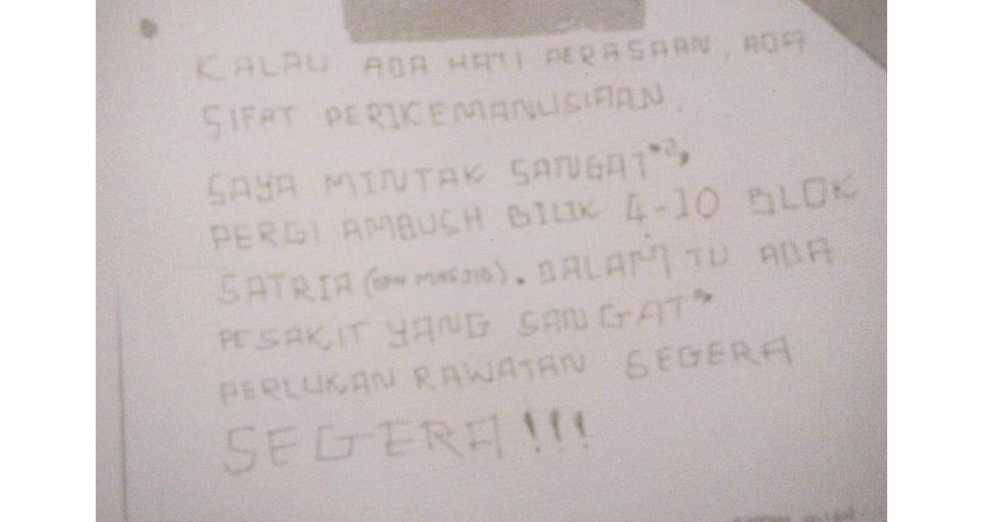 KALAU ADA HATI PERASAAN, ADA
SIFAT PERIKEMANUSIAAN.
SAYA MINTAK SANGAT"2,
PERGI AMBUSH BILIK 4-10 BLOK
SATRIA ( MASJID). DALAM TU ADA
PESAKIT YANG SANGAT"
PERLUKAN RAWATAN SEGERA
SEGERA!!!